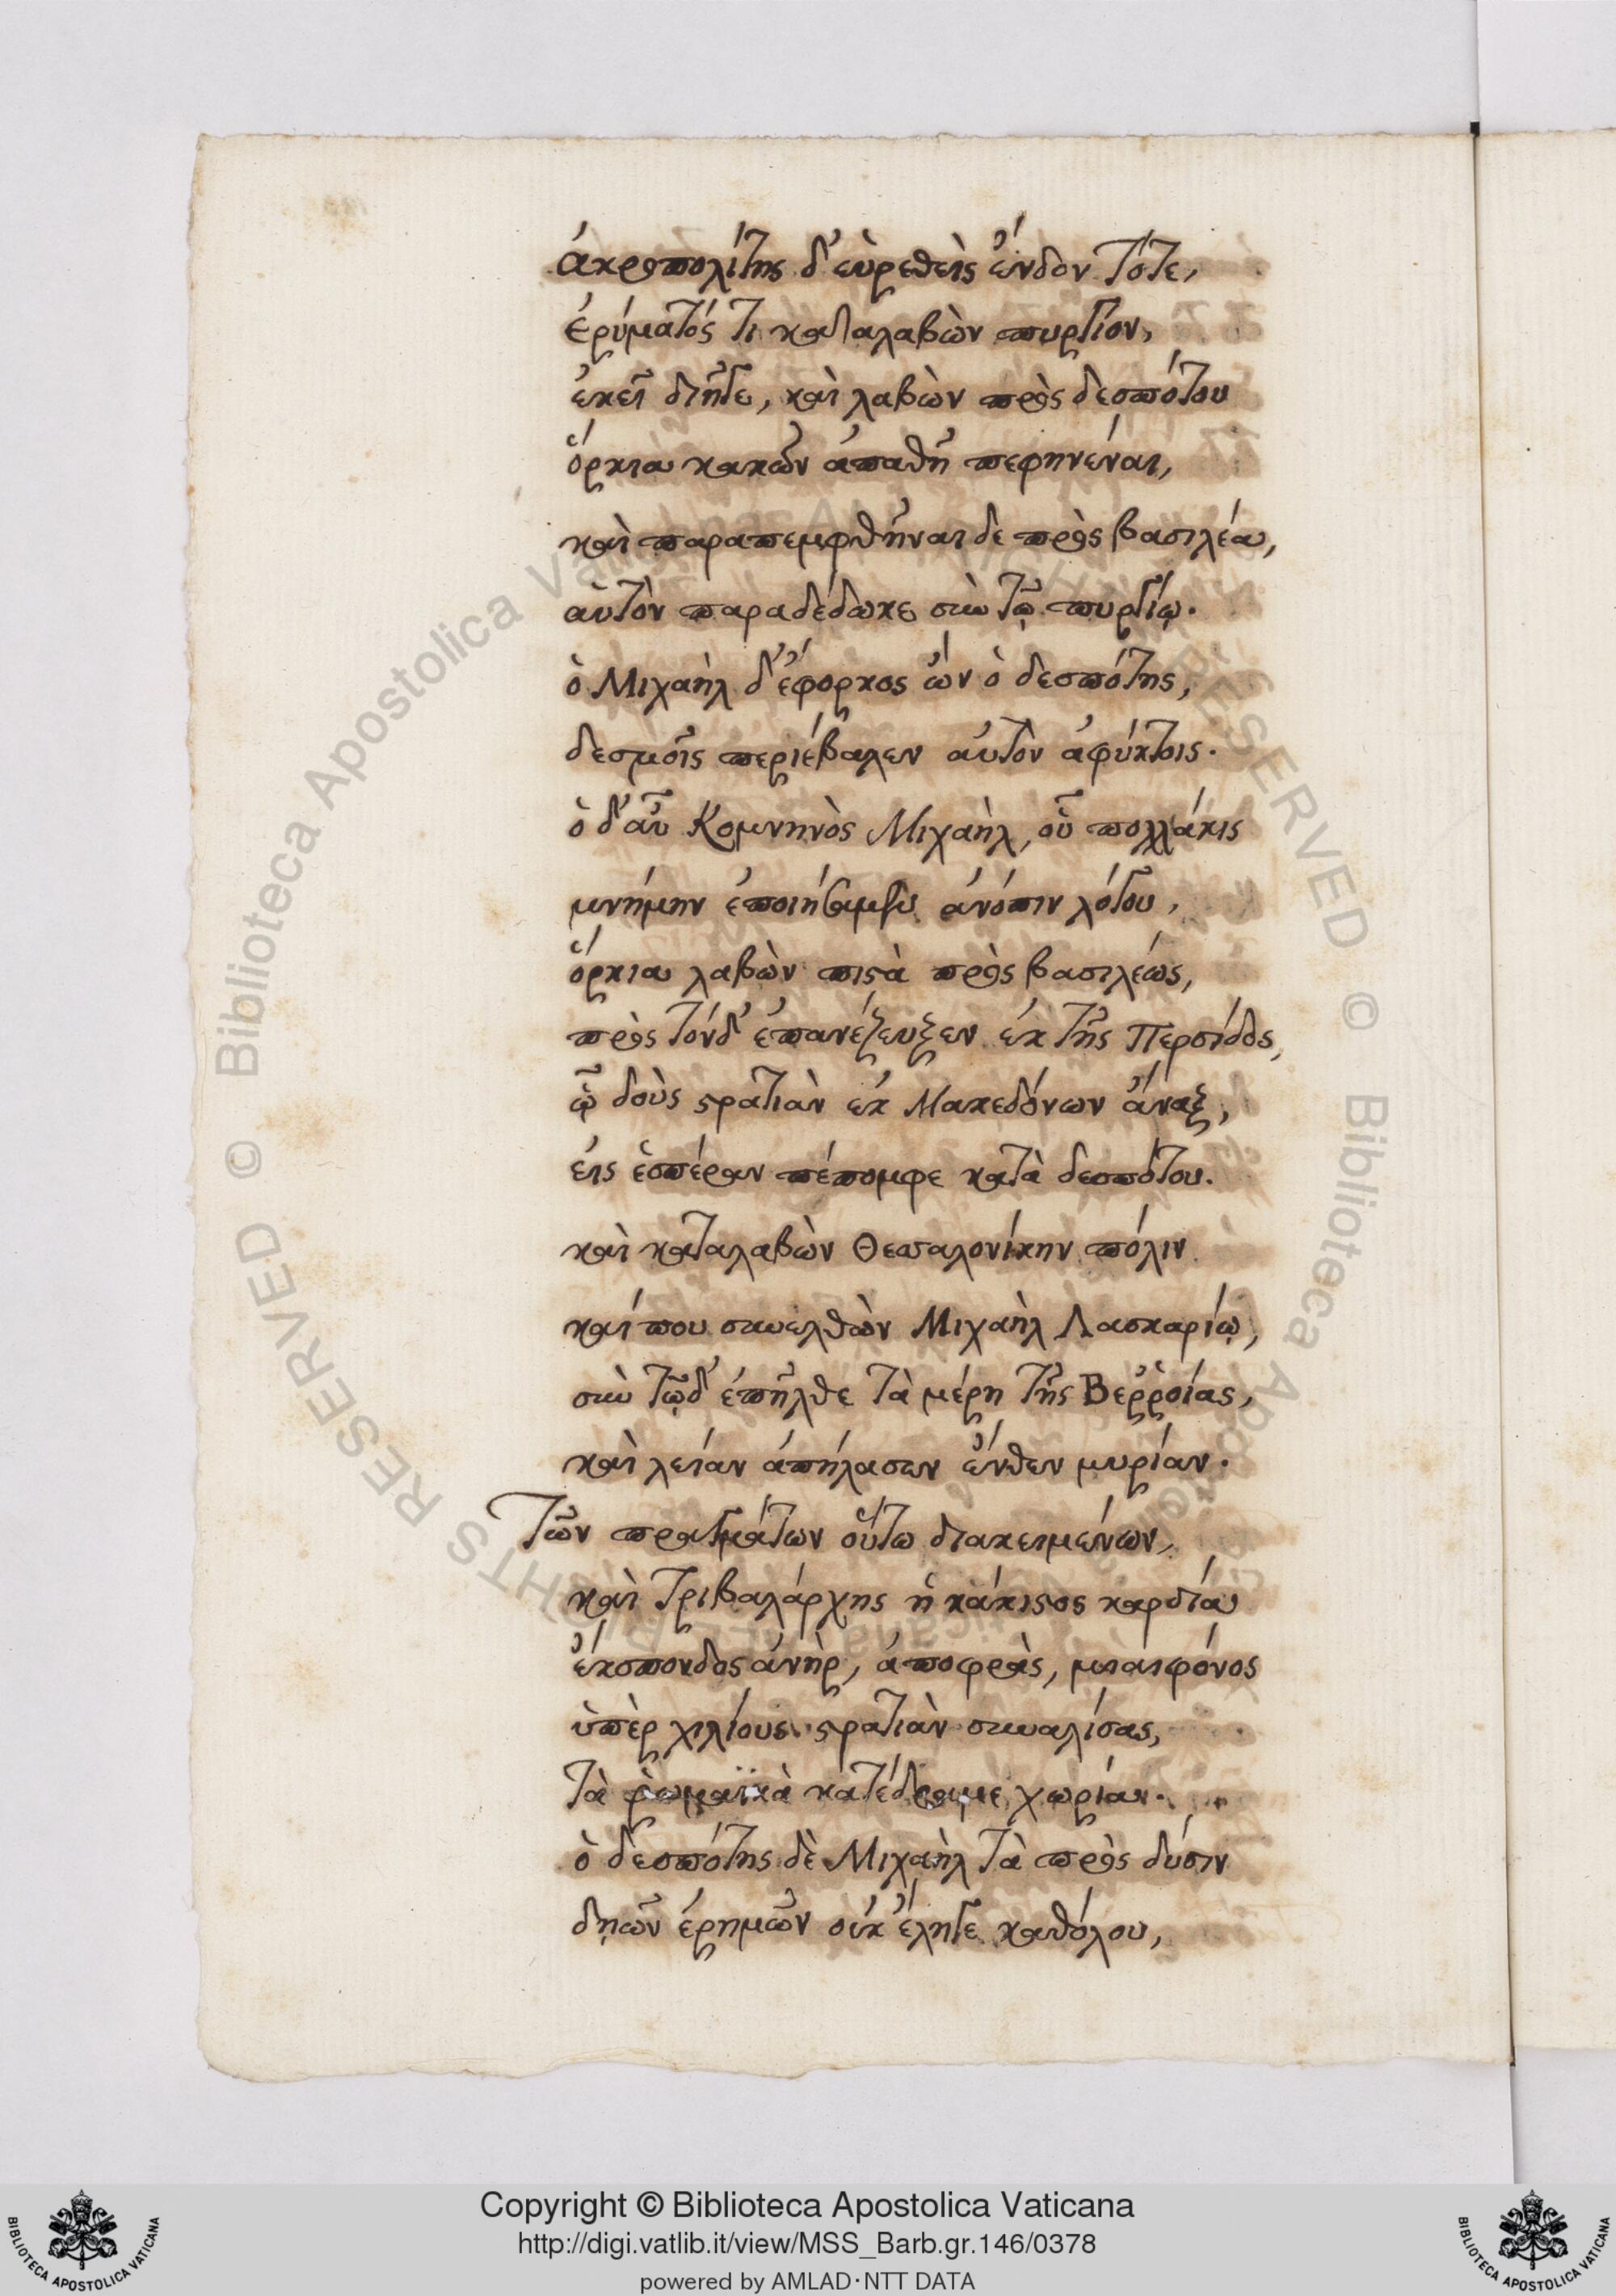 ἀκροπολίτης δ' εὑρεθεὶς ἔνδον τότε,
ἐρύματός τι καταλαβὼν πυργίον,
ἐκεῖ διῆγε, καὶ λαβὼν πρὸς δεσπότου
ὅρκια κακῶν ἀπαθῆ πεφηνέναι,
καὶ παραπεμφθῆναι δε πρὸς βασιλέα,
αὐτὸν παραδέδωκε σὺν τῷ πυργίῳ.
ὁ Μιχαὴλ δ' ἔφορκος ὢν ὁ δεσπότης,
δεσμοῖς περιέβαλεν αὐτὸν ἀφύκτοις.
ὁ δ' αὖ Κομνηνὸς Μιχαὴλ, οὗ πολλάκις
μνήμην ἐποιησάμην ἀνόπιν λόγου,
ὅρκια λαβὼν πιστὰ πρὸς βασιλέως,
πρὸς τόνδ' ἐπανέζευξεν ἐκ τῆς Περσίδος,
ᾧ δοὺς στρατιὰν ἐκ Μακεδόνων ἄναξ,
εἰς ἑσπέραν πέπομφε κατὰ δεσπότου.
καὶ καταλαβὼν Θεσαλονίκην πόλιν
καί που συνελθὼν Μιχαὴλ Λασκαρίῳ,
σὺν τῷδ' ἐπῆλθε τὰ μέρη τῆς Βεῤῥοίας,
καὶ λείαν ἀπήλασεν ἔνθεν μυρίαν.
Τῶν πραγμάτων οὕτω διακειμένων,
καὶ Τριβαλάρχης ἡ κάκιστος καρδία
ἔκσπονδος ἀνὴρ, ἀποφρὰς, μιαιφόνος
ὑπὲρ χιλίους στρατιὰν συναλίσας,
τὰ ῥωμαϊκὰ κατέδραμε χωρία.
ὁ δεσπότης δὲ Μιχαὴλ τὰ πρὸς δύσιν
δῃῶν ἐρημῶν οὐκ ἔληγε καθόλου,
Copyright © Biblioteca Apostolica Vaticana
http://digi.vatlib.it/view/MSS_Barb.gr.146/0378
powered by AMLAD·NTT DATA